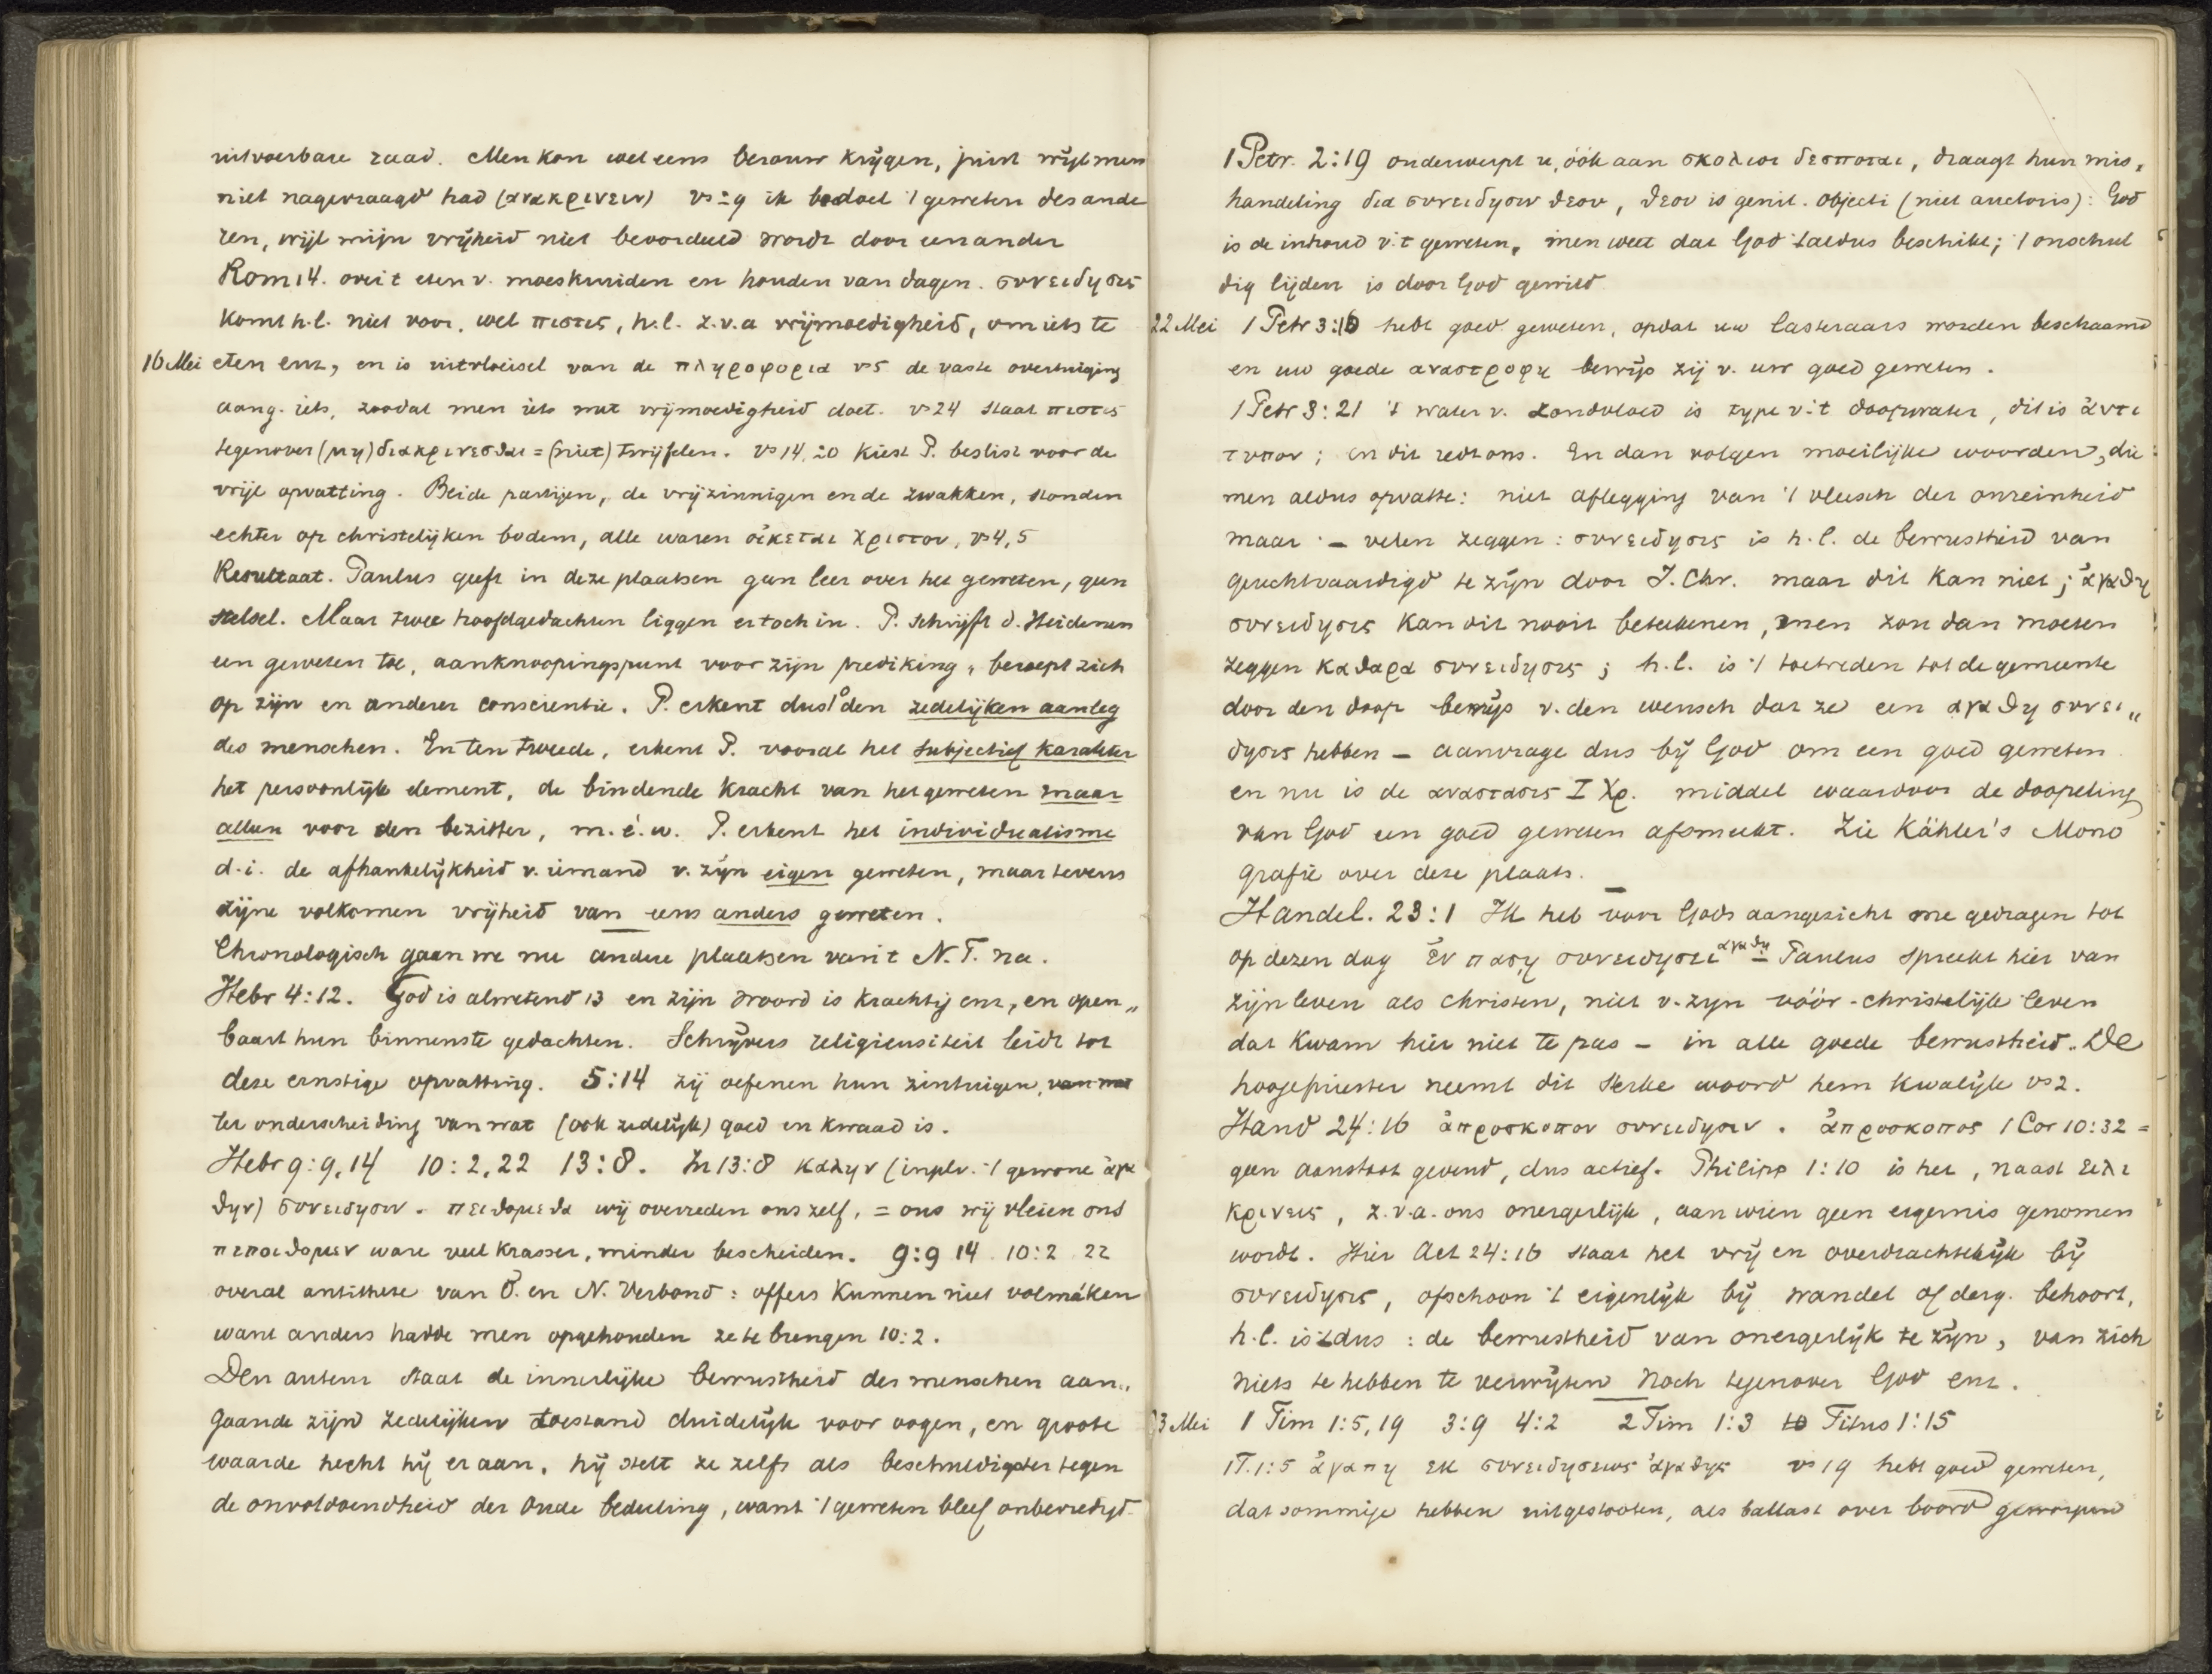 uitvoerbare raad. Men kon wel eens berouw krijgen, juist wijl men
niet nagevraagd had (ανακρινειν) vs 29 ik bedoel 't geweten des ande
ren, wijl mijn vrijheid niet beoordeeld wordt door een ander
Rom 14. over 't eten v. moeskruiden en houden van dagen. συνειδησις
komt h.l. niet voor, wel πιστις, h.l. z.v.a vrijmoedigheid, om iets te
16 Mei eten enz, en is uitvloeisel van de πληροφορια vs 5 de vaste overtuiging
aang. iets, zoodat men iets met vrijmoedigheid doet. vs 24 staat πιστις
tegenover (μη) διακρινεσθαι = (niet) twijfelen. vs 14, 20 kiest P. beslist voor de
vrije opvatting. Beide partijen, de vrijzinnigen en de zwakken, stonden
echter op christelijken bodem, alle waren οἰκεται Χριστου, vs 4, 5
Resultaat. Paulus geeft in deze plaatsen geen leer over het geweten, geen
stelsel. Maar twee hoofdgedachten liggen er toch in. P. schrijft d. Heidenen
een geweten toe, aanknoopingspunt voor zijn prediking, beroept zich
op zijn en anderer conscientie. P. erkent dus 1° den zedelijken aanleg
des menschen. En ten tweede, erkent P. vooral het subjectief karakter
het persoonlijk element, de bindende kracht van het geweten maar
alleen voor den bezitter, m.é.w. P. erkent het individualisme
d.i. de afhankelijkheid v. iemand v. zijn eigen geweten, maar tevens
zijne volkomen vrijheid van eens anders geweten.
Chronologisch gaan we nu andere plaatsen van 't N.T. na.
Hebr 4:12. God is alwetend 13 en zijn woord is krachtig enz, en open„
baart hun binnenste gedachten. Schrijvers religieusiteit leidt tot
deze ernstige opvatting. 5:14 zij oefenen hun zintuigen, van wat
ter onderscheiding van wat (ook zedelijk) goed en kwaad is.
Hebr 9:9,14 10:2,22 13:8. In 13:8 καλην (inplv. 't gewone ἀγα
θην) συνειδησιν. πειθομεθα wij overreden ons zelf, = ons wij vleien ons
πεποιθομεν ware veel krasser, minder bescheiden. 9:9 14 10:2 22
overal antithese van O. en N. Verbond: offers kunnen niet volmáken
want anders hadde men opgehouden ze te brengen 10:2.
Den auteur staat de innerlijke bewustheid des menschen aan„
gaande zijnd zedelijken toestand duidelijk voor oogen, en groote
waarde hecht hij er aan, hij stelt ze zelfs als beschuldigster tegen
de onvoldoendheid der Oude bedeeling, want 't geweten bleef onbevredigd.
1 Petr. 2:19 onderwerpt u, óók aan σκολιοι δεσποται, draagt hun mis„
handeling δια συνειδησιν θεου, θεου is genit. objecti (niet auctoris): God
is de inhoud v. 't geweten, men weet dat God 't aldus beschikt; 't onschul
dig lijden is door God gewild
22 Mei 1 Petr 3:16 hebt goed geweten, opdat uw lasteraars worden beschaamd
en uw goede αναστροφη bewijs zij v. uw goed geweten.
1 Petr 3:21 't water v. zondvloed is type v. 't doopwater, dit is ἀντι
τυπον; en dit redt ons. En dan volgen moeilijke woorden, die
men aldus opvatte: niet aflegging van 't vleesch der onreinheid
maar – velen zeggen: συνειδησις is h.l. de bewustheid van
gerechtvaardigd te zijn door J. Chr. maar dit kan niet; ἀγαθη
συνειδησις kan dit nooit beteekenen, men zou dan moeten
zeggen καθαρα συνειδησις; h.l. is 't toetreden tot de gemeente
door den doop bewijs v. den wensch dat ze een αγαθη συνει„
δησις hebben – aanvrage dus bij God om een goed geweten
en nu is de αναστασις Ι Χρ. middel waardoor de doopeling
van God een goed geweten afsmeekt. Zie Kähler's Mono
grafie over deze plaats.
Handel. 23:1 Ik heb voor Gods aangezicht me gedragen tot
op dezen dag ἐν παση συνειδησει αγαθη – Paulus spreekt hier van
zijn leven als christen, niet v. zijn vóór-christelijk leven
dat kwam hier niet te pas – in alle goede bewustheid. De
hoogepriester neemt dit sterke woord hem kwalijk vs 2.
Hand 24:16 ἀπροσκοπον συνειδησιν. ἀπροσκοπος 1 Cor 10:32 =
geen aanstoot gevend, dus actief. Philipp 1:10 is het, naast ειλι
κρινεις, z.v.a. ons onergerlijk, aan wien geen ergernis genomen
wordt. Hier Act 24:16 staat het vrij en overdrachtelijk bij
συνειδησις, ofschoon 't eigenlijk bij wandel of derg. behoort,
h.l. is 't dus: de bewustheid van onergerlijk te zijn, van zich
niets te hebben te verwijten noch tegenover God enz.
23 Mei 1 Tim 1:5,19 3:9 4:2 2 Tim 1:3 Titus 1:15
1 T. 1:5 ἀγαπη εκ συνειδησεως ἀγαθης vs 19 hebt goed geweten,
dat sommige hebben uitgestooten, als ballast over boord geworpen